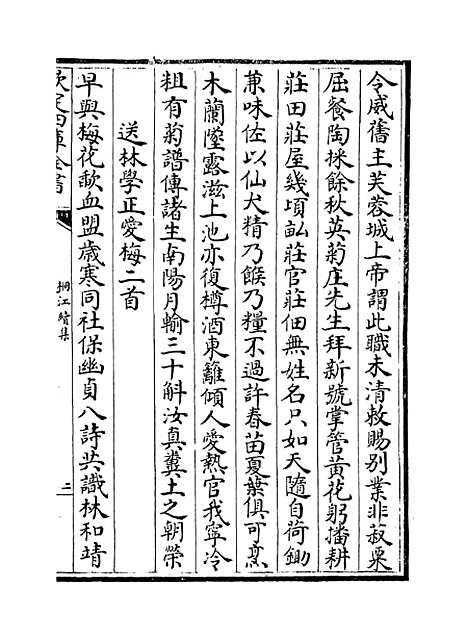 令威舊主芙蓉城上帝謂此職未清敕賜别業非菽粟
屈餐陶採餘秋英菊庄先生拜新號掌管黄花躬播耕
莊田莊屋幾頃畝莊官莊佃無姓名只如天隨自荷鋤
兼味佐以仙犬精乃餱乃糧不過許春苗夏葉俱可烹
木蘭墜露滋上池亦復樽酒東籬傾人愛熱官我寧冷
粗有菊譜傳諸生南陽月輸三十斛汝真糞土之朝榮
送林學正愛梅二首
早與梅花歃血盟歳寒同社保幽貞八詩共識林和靖
欽定四庫全書
桐江續集
二